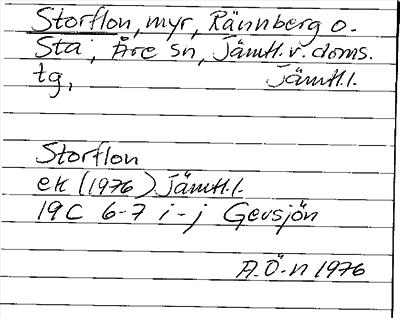 Storflon, myr, Rännberg o.
Sta, Åre sn, Jämtl. v. doms.
tg, Jämtl.l.
Storflon
ek (1976) Jämtl.l.
19C 6-7 i-j Gevsjön
A.Ö-n 1976